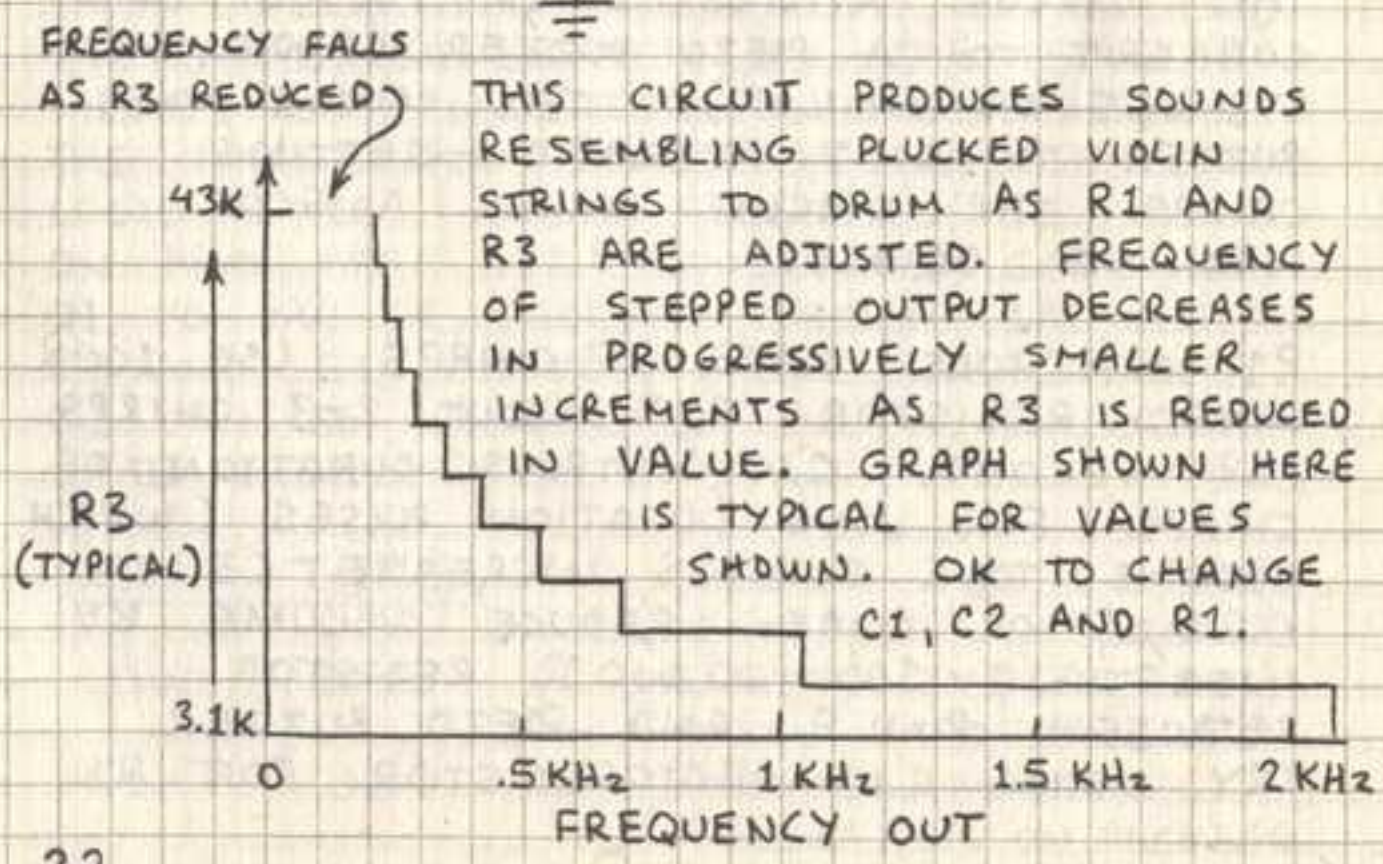 FREQUENCY FALLS
AS R3 REDUCED
THIS CIRCUIT PRODUCES SOUNDS
RESEMBLING PLUCKED VIOLIN
STRINGS TO DRUM AS R1 AND
R3 ARE ADJUSTED. FREQUENCY
OF STEPPED OUTPUT DECREASES
IN PROGRESSIVELY SMALLER
INCREMENTS AS R3 IS REDUCED
IN VALUE. GRAPH SHOWN HERE
IS TYPICAL FOR VALUES
SHOWN. OK TO CHANGE
C1, C2 AND R1.
43K
R3
(TYPICAL)
3.1K
0 .5 KHz 1 KHz 1.5 KHz 2 KHz
FREQUENCY OUT